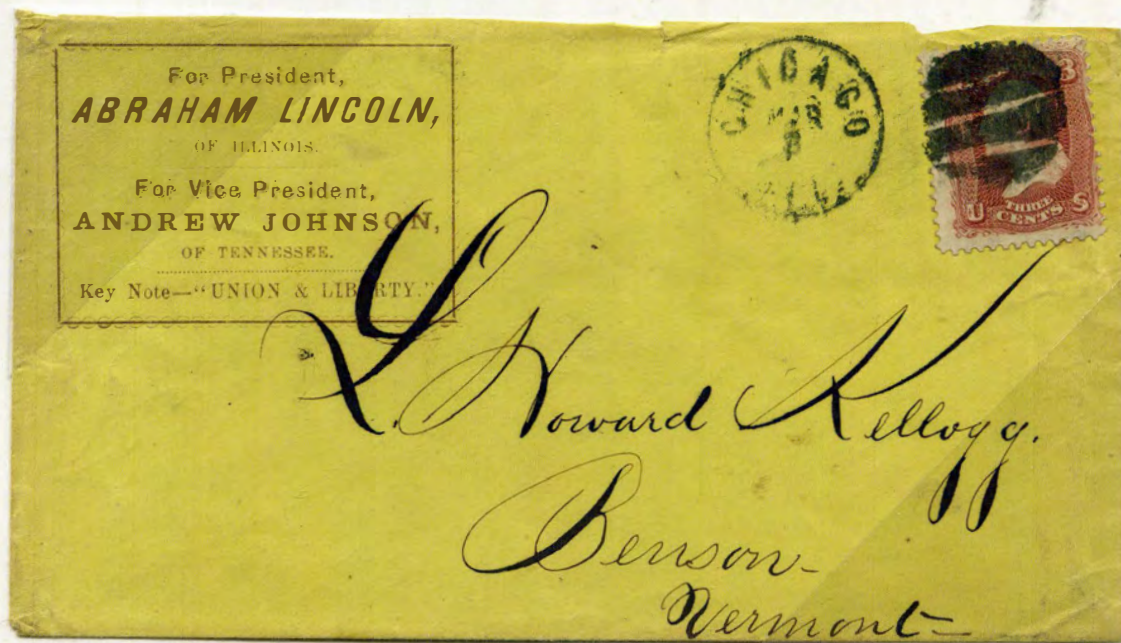 For President,
ABRAHAM LINCOLN,
OF ILLINOIS.
For Vice President,
ANDREW JOHNSON,
OF TENNESSEE.
Key Note—"UNION & LIBERTY."
CHICAGO
3
THREE
U CENTS S
L. Howard Kellogg.
Benson-
Vermont-